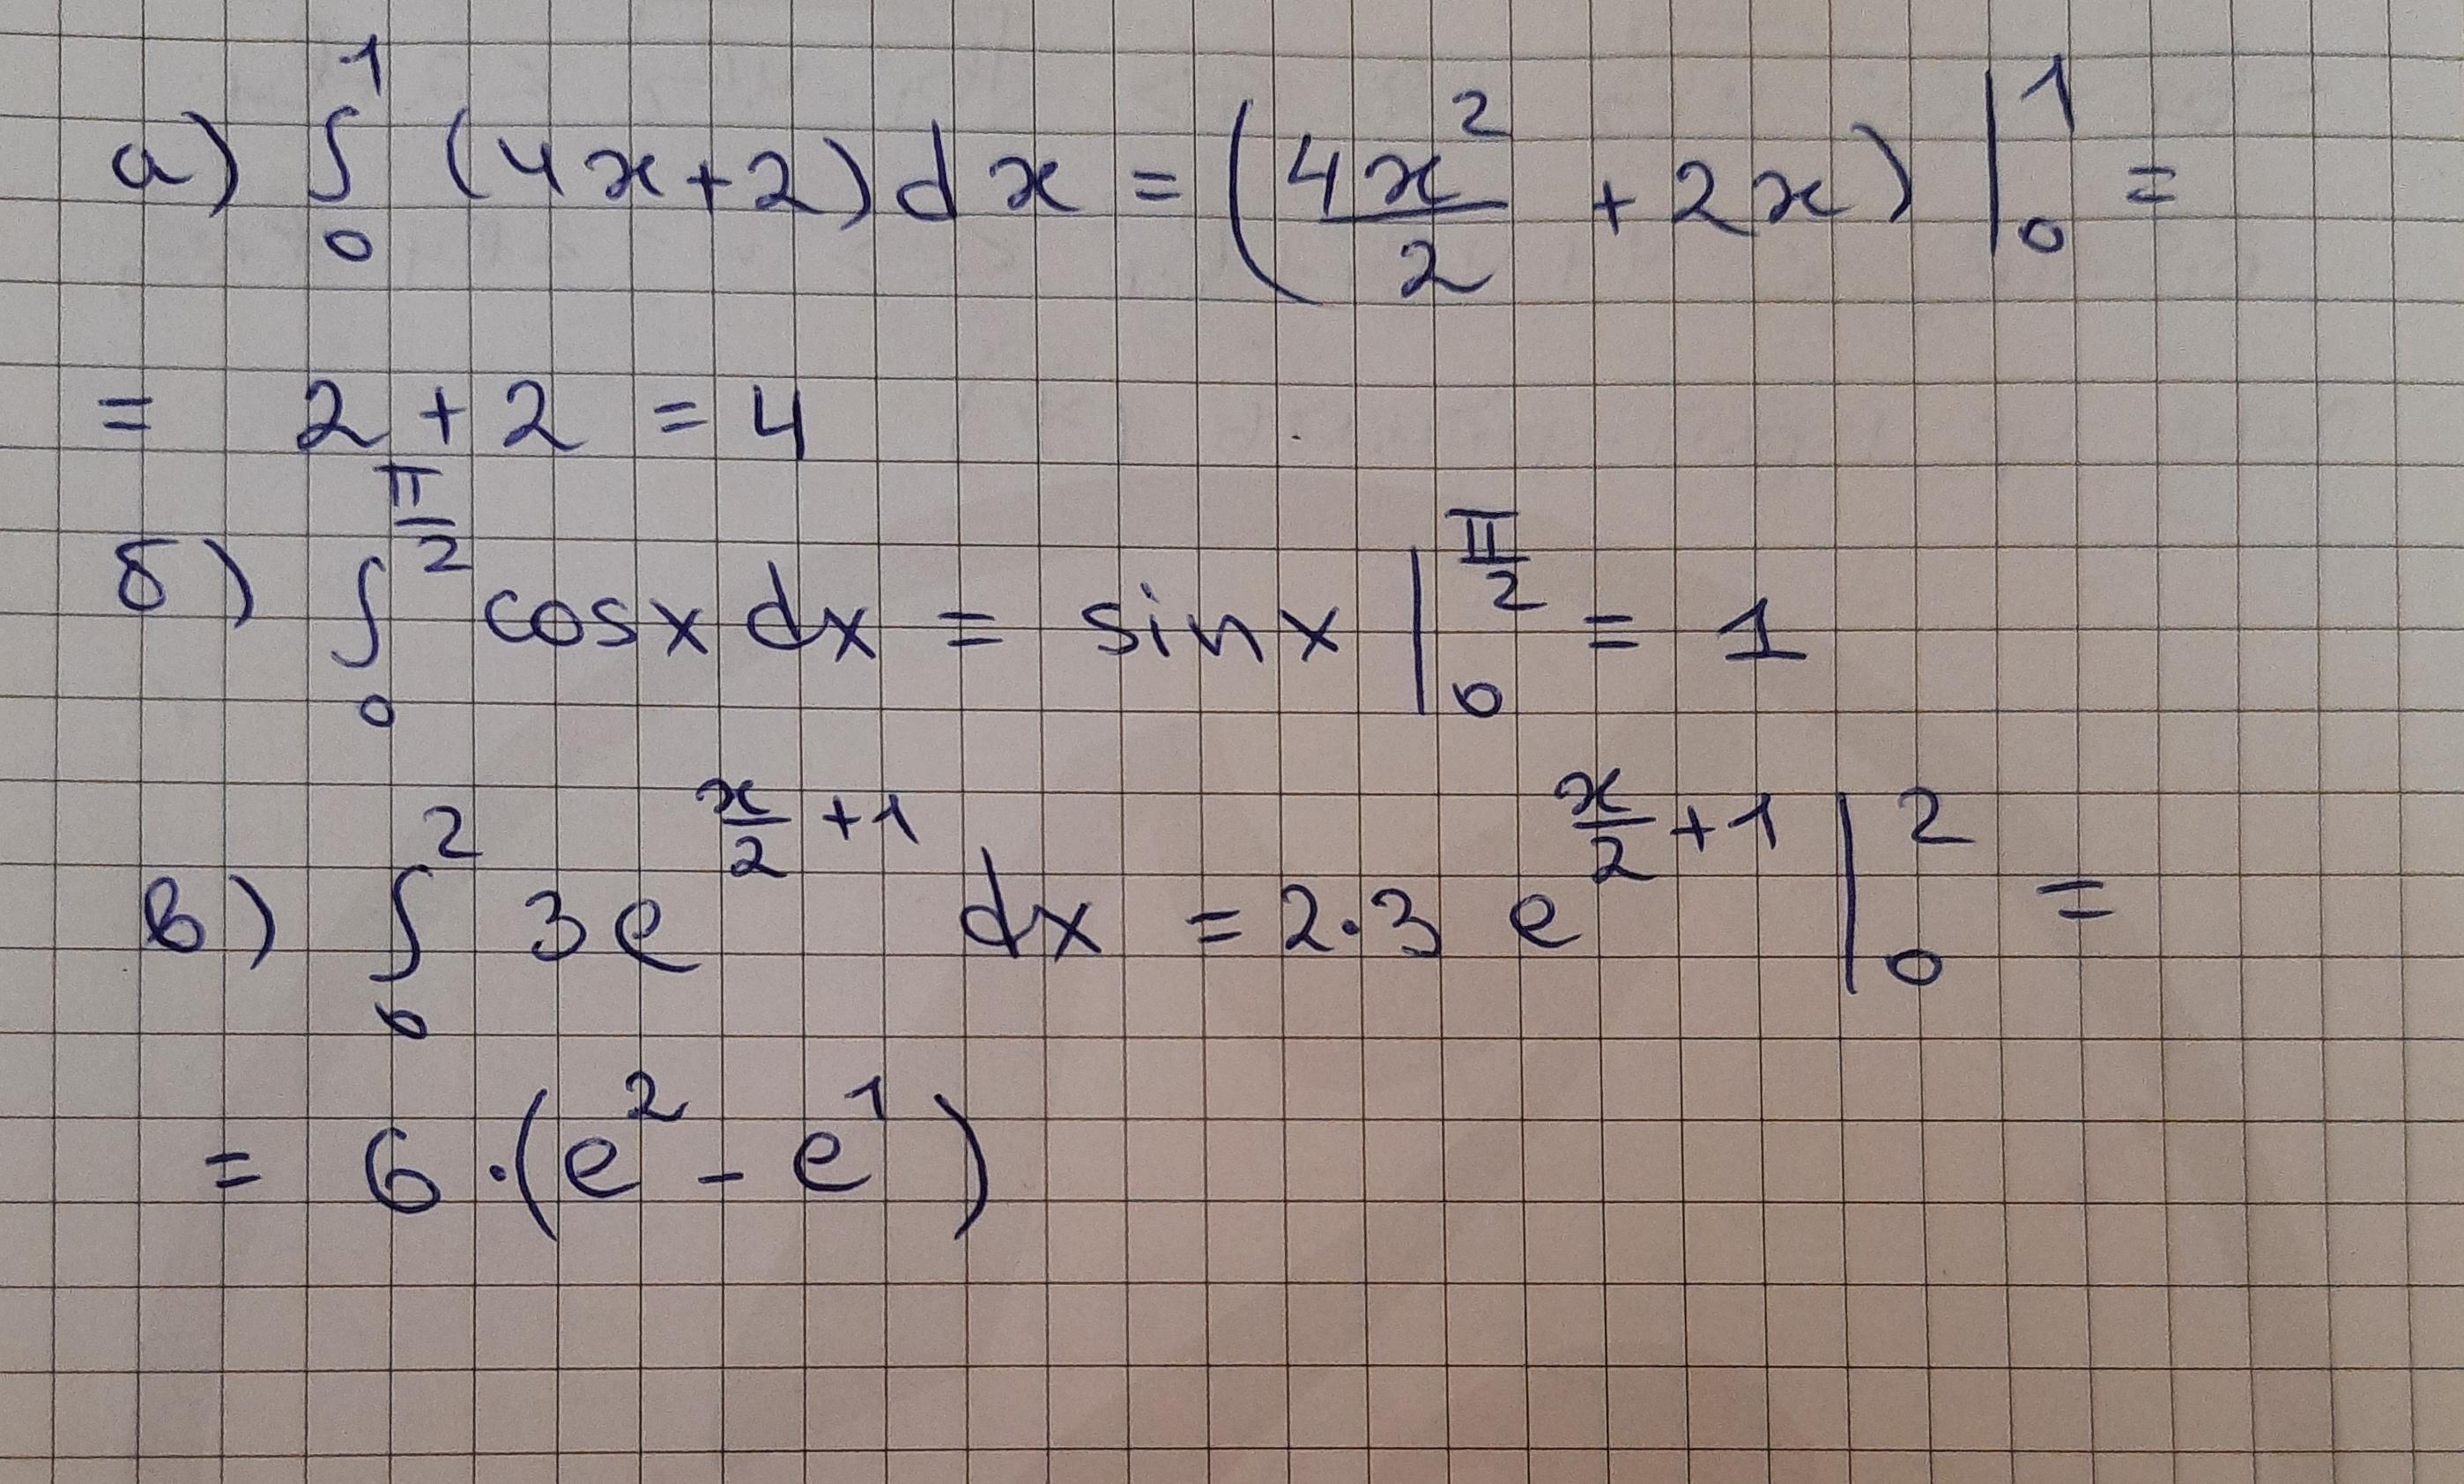 а) ∫₀¹ (4x+2)dx = (4x²/2 + 2x) |₀¹ =
= 2 + 2 = 4
б) ∫₀^(π/2) cosx dx = sinx |₀^(π/2) = 1
в) ∫₀² 3e^(x/2 +1) dx = 2·3 e^(x/2 +1) |₀² =
= 6·(e² - e¹)